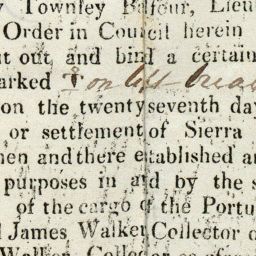 y Townley Balfour, Lieu
Order in Council herein
ut out and bind a certain
arked on left brea
on the twenty seventh da
or settlement of Sierra
hen and there established a
purposes in aid by the s
of the cargo of the Portu
l James Walker Collector o
Walker Collec